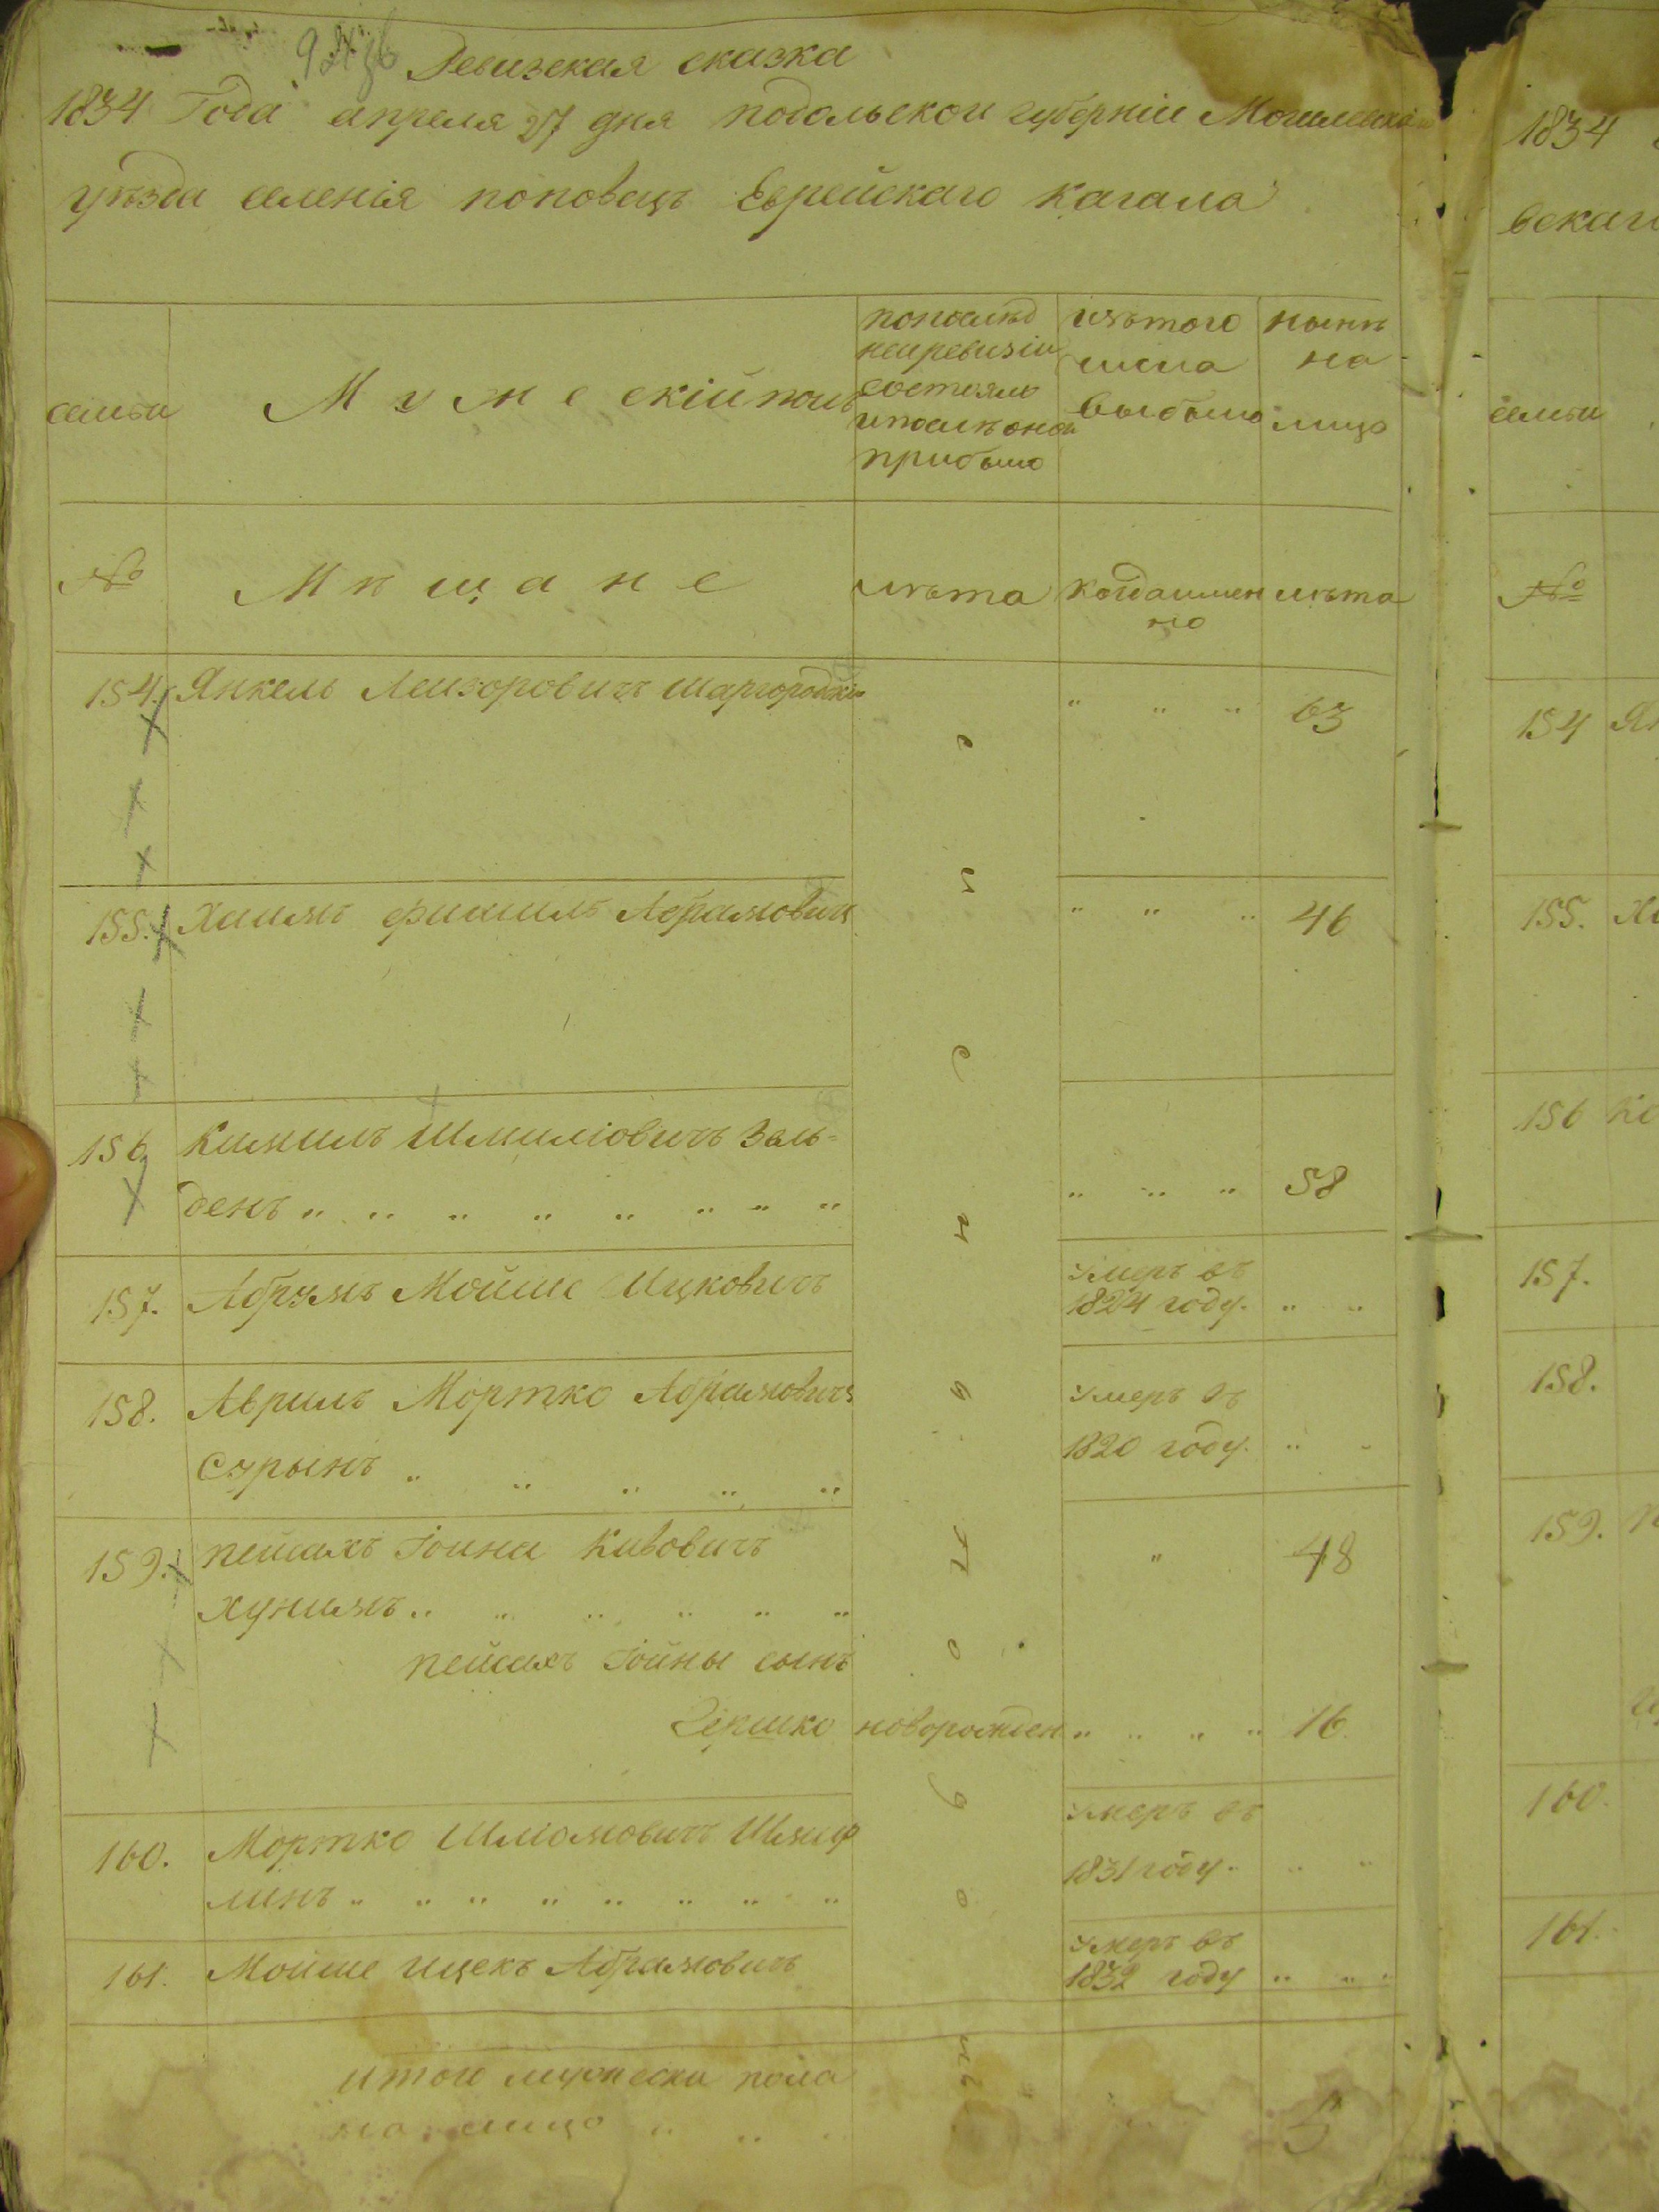 Ревизская сказка
1834 Года апреля 27 дня подольской губерніи Могилевска
уѣзда селенія поповецъ Еврейскаго кагала
семьи
Мужескій полъ
попослѣд
ней ревизіи
состояло
и послѣ оной
прибыло
изъ того
числа
выбыло
нынѣ
на
лицо
№
Мѣщане
лѣта
когда имен
но
лѣта
154. Янкель Лейзоровичъ Шаргородскій " " " 63
155. Хаимъ Фишиль Абрамович " " " 46
156 Кишиль Шмиліовичъ Заль=
денъ " " " " " " " " " " " 58
157. Абрумъ Мойше Ицковичъ
умеръ въ
1824 году. " "
158. Аврумъ Мортко Абрамовичъ
Сурынъ " " " " "
умеръ въ
1820 году. " "
159. пейсахъ Іойна Кивовичъ " 48
хунимъ " " " " " "
пейсахъ Іойны сынъ
Гершко новорожден " " " " 16.
160. Мортко Шліомовичъ
линъ " " " " " " " "
умеръ въ
1831 году. " "
161. Мойше Ицекъ Абрамовичъ
умеръ въ
1832 году " " "
итого мужеска пола
на лицо " " " 5
1834
вскаго
семьи
№
154 Ян
155. Ха
156 Ки
157.
158.
159. п
160.
161.